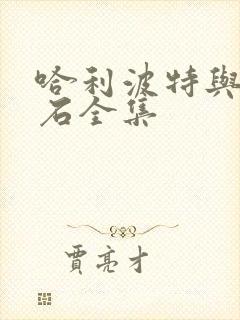 哈利波特與
石全集
賈亮才